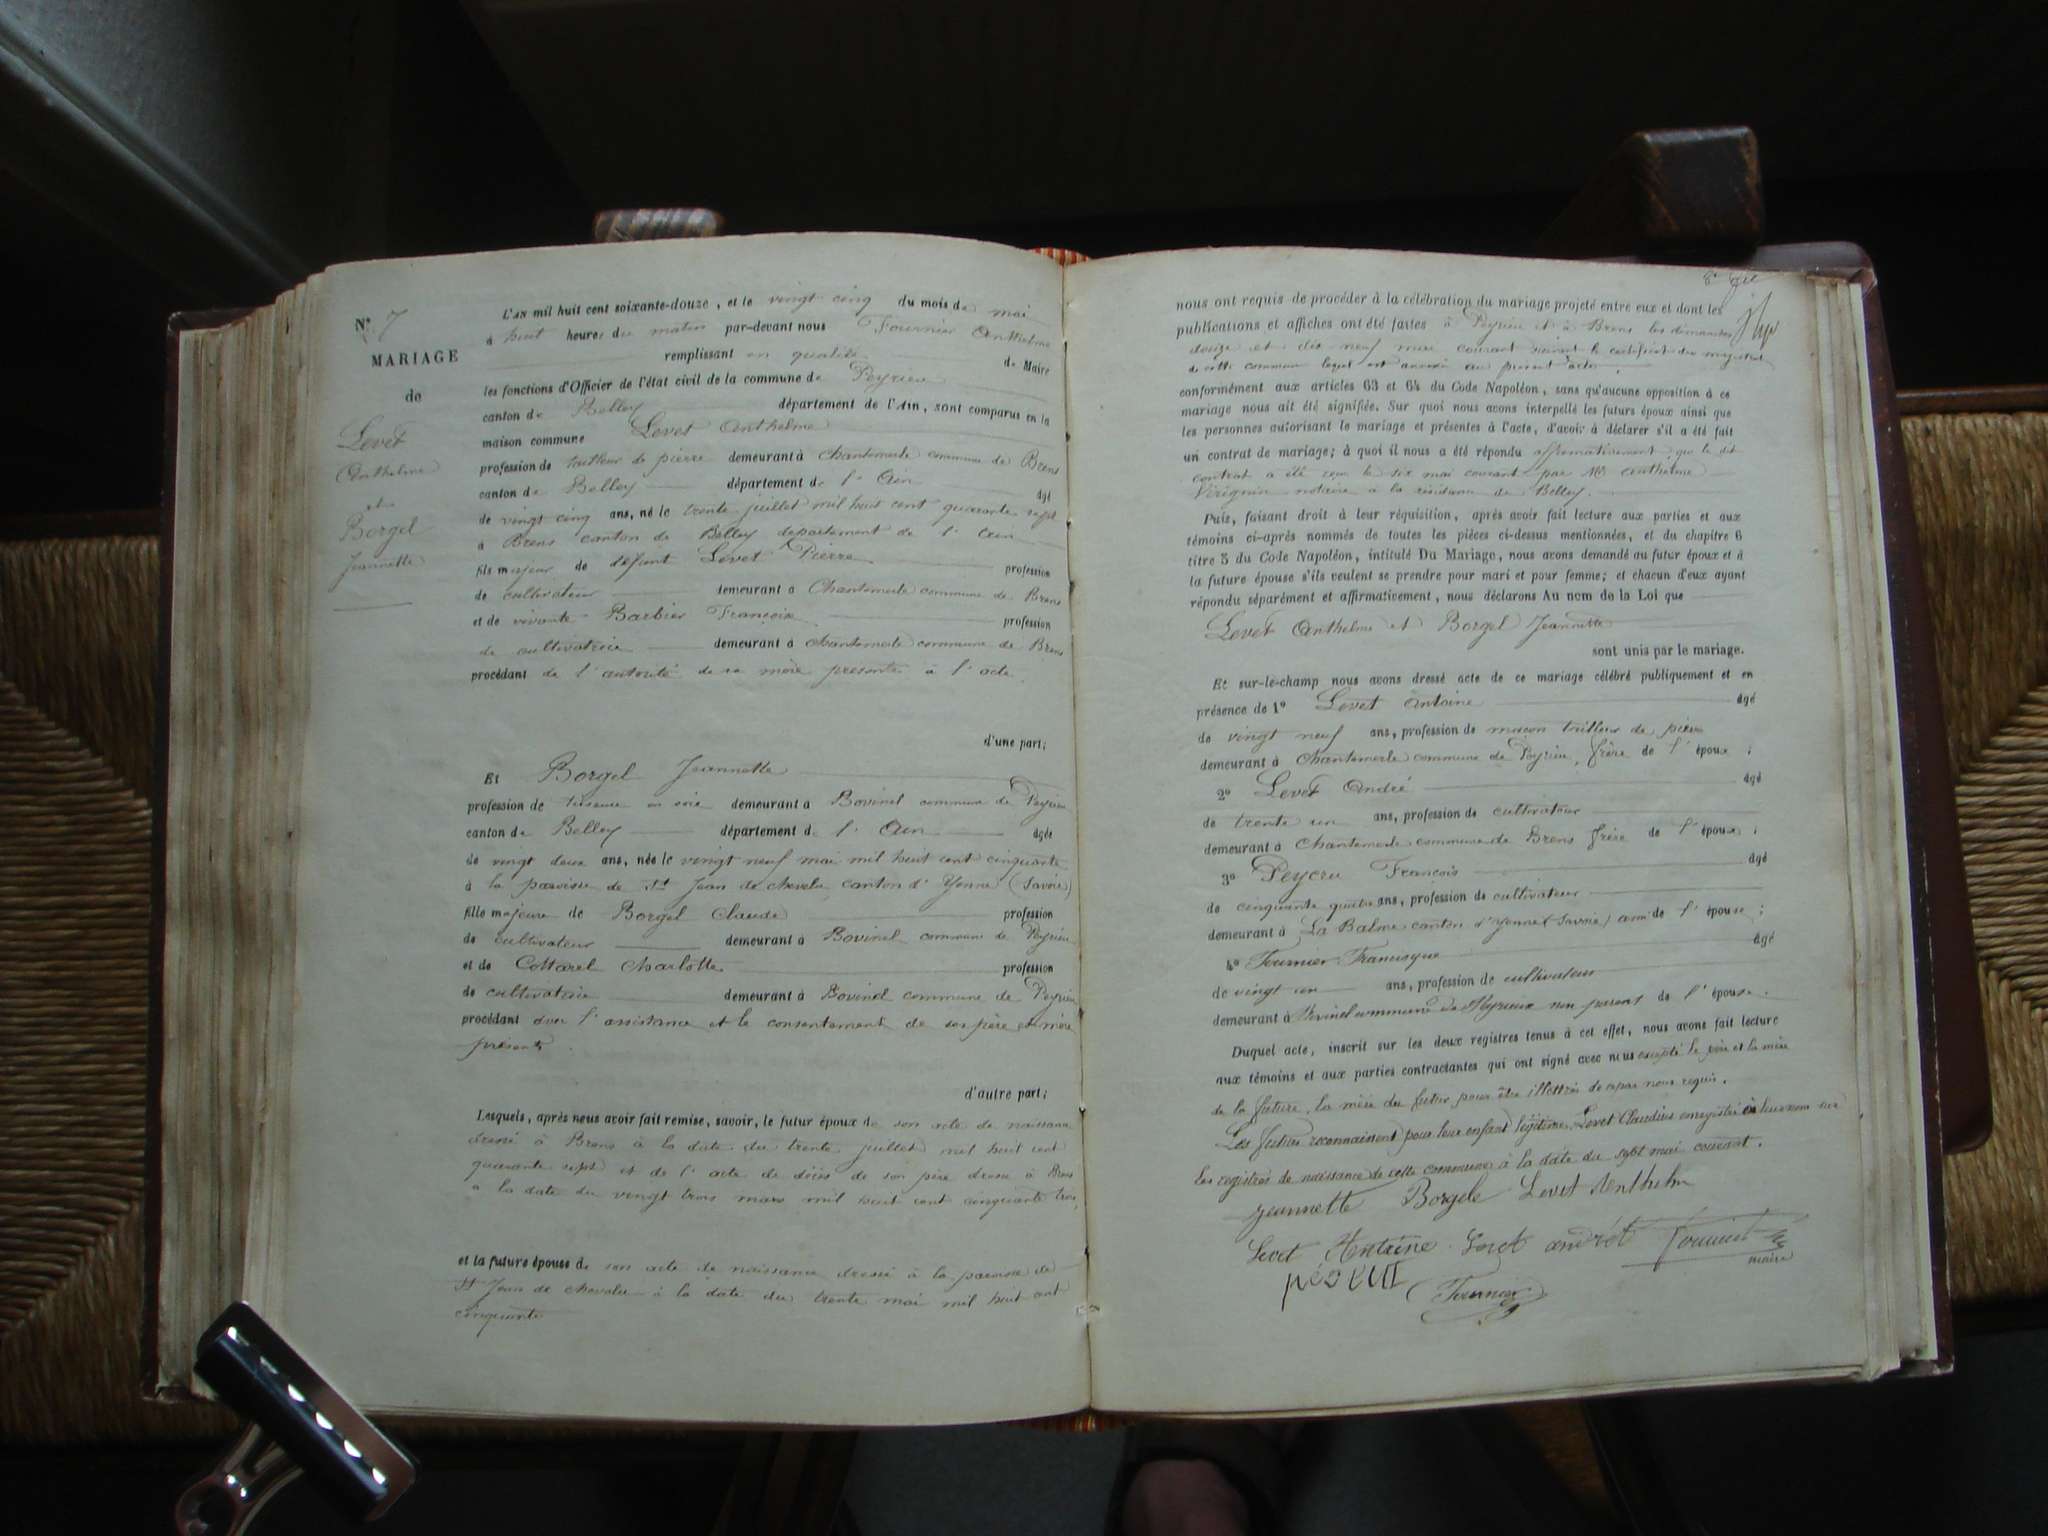 N° 7
MARIAGE
de
Levet
Anthelme
et
Borgel
Jeannette
L'AN mil huit cent soixante-douze, et le vingt cinq du mois de mai
à huit heures du matin par-devant nous Fournier Anthelme
remplissant en qualité de Maire
les fonctions d'Officier de l'état civil de la commune de Peyrieu
canton de Belley département de l'Ain, sont comparus en la
maison commune Levet Anthelme
profession de tailleur de pierre demeurant à Chantemerle commune de Brens
canton de Belley département de l'Ain âgé
de vingt cinq ans, né le trente juillet mil huit cent quarante sept
à Brens canton de Belley département de l'Ain
fils majeur de défunt Levet Pierre profession
de cultivateur demeurant à Chantemerle commune de Brens
et de vivante Barbier Françoise profession
de cultivatrice demeurant à Chantemerle commune de Brens
procédant de l'autorité de sa mère présente à l'acte.
d'une part;
Et Borgel Jeannette
profession de tisseuse en soie demeurant à Bovinel commune de Peyrieu
canton de Belley département de l'Ain âgée
de vingt deux ans, née le vingt neuf mai mil huit cent cinquante
à la paroisse de St Jean de chevelu canton d'Yenne (Savoie)
fille majeure de Borgel Claude profession
de cultivateur demeurant à Bovinel commune de Peyrieu
et de Cottarel Charlotte profession
de cultivatrice demeurant à Bovinel commune de Peyrieu
procédant avec l'assistance et le consentement de ses père et mère
présents.
d'autre part;
Lesquels, après nous avoir fait remise, savoir, le futur époux de son acte de naissance
dressé à Brens à la date du trente juillet mil huit cent
quarante sept et de l'acte de décès de son père dressé à Brens
à la date du vingt trois mars mil huit cent cinquante trois,
et la future épouse de son acte de naissance dressé à la paroisse de
St Jean de chevelu à la date du trente mai mil huit cent
cinquante
nous ont requis de procéder à la célébration du mariage projeté entre eux et dont les
publications et affiches ont été faites à Peyrieu et à Brens les dimanches
douze et dix neuf mai courant suivant le certificat du magistrat
de cette commune lequel est annexé au présent acte.
conformément aux articles 63 et 64 du Code Napoléon, sans qu'aucune opposition à ce
mariage nous ait été signifiée. Sur quoi nous avons interpellé les futurs époux ainsi que
les personnes autorisant le mariage et présentes à l'acte, d'avoir à déclarer s'il a été fait
un contrat de mariage; à quoi il nous a été répondu affirmativement que le dit
contrat a été reçu le six mai courant par Me Anthelme
Virignin notaire à la résidence de Belley.
Puis, faisant droit à leur réquisition, après avoir fait lecture aux parties et aux
témoins ci-après nommés de toutes les pièces ci-dessus mentionnées, et du chapitre 6
titre 5 du Code Napoléon, intitulé Du Mariage, nous avons demandé au futur époux et à
la future épouse s'ils veulent se prendre pour mari et pour femme; et chacun d'eux ayant
répondu séparément et affirmativement, nous déclarons Au nom de la Loi que
Levet Anthelme et Borgel Jeannette
sont unis par le mariage.
Et sur-le-champ nous avons dressé acte de ce mariage célébré publiquement et en
présence de 1° Levet Antoine âgé
de vingt neuf ans, profession de maçon tailleur de pierre
demeurant à Chantemerle commune de Peyrieu, frère de l'époux;
2° Levet André âgé
de trente un ans, profession de cultivateur
demeurant à Chantemerle commune de Brens frère de l'époux;
3° Peycru François âgé
de cinquante quatre ans, profession de cultivateur
demeurant à La Balme canton d'Yenne (Savoie) ami de l'épouse;
4° Fournier Francisque âgé
de vingt un ans, profession de cultivateur
demeurant à Bovinel commune de Peyrieux non parent de l'épouse.
Duquel acte, inscrit sur les deux registres tenus à cet effet, nous avons fait lecture
aux témoins et aux parties contractantes qui ont signé avec nous excepté le père et la mère
de la future, la mère du futur pour être illettrés de ce par nous requis.
Les futurs reconnaissent pour leur enfant légitime, Levet Claudius enregistré en leur nom sur
les registres de naissance de cette commune à la date du sept mai courant.
jeannette Borgele Levet Anthelm
Levet Antoine Levet andrét Fournier
maire
Fournier